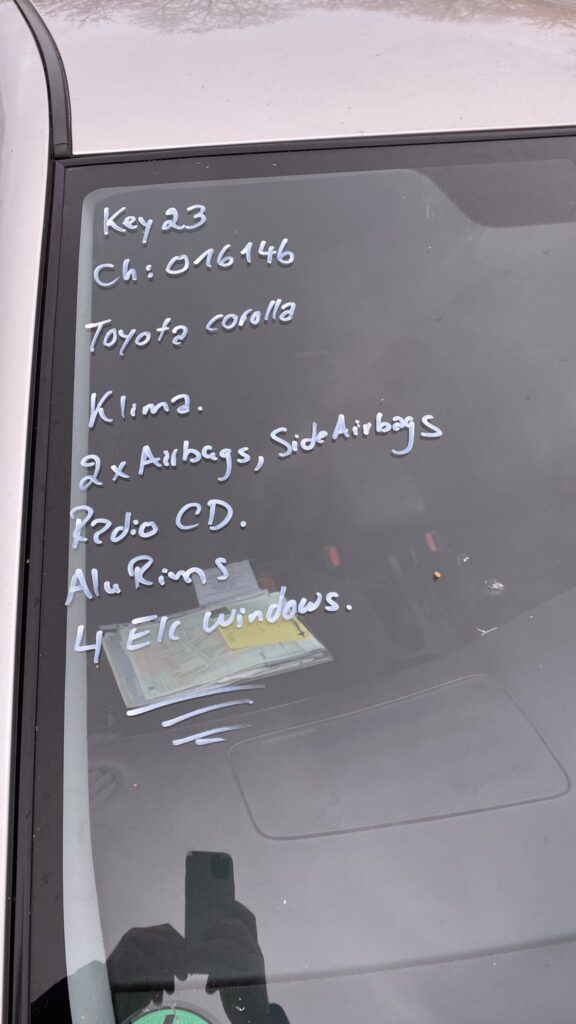 Key 23
Ch: 016146
Toyota corolla
Klima.
2x Airbags, Side Airbags
Radio CD.
Alu Rims
4 Elc windows.